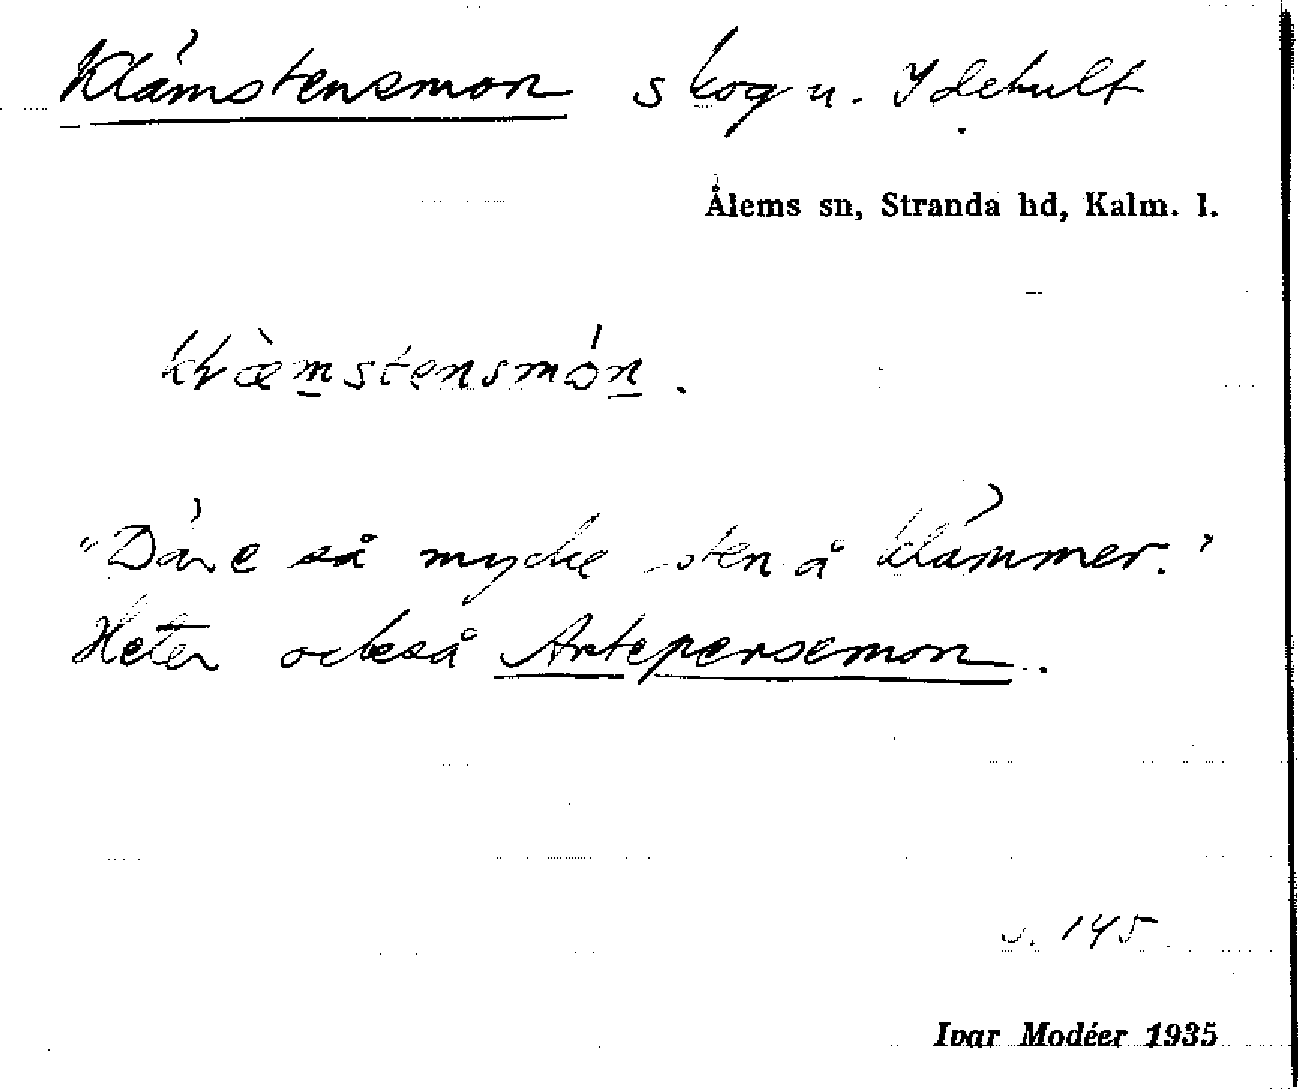 Klämstensmon skog u. Idehult
Ålems sn, Stranda hd, Kalm. l.
klæ̀mstensmón.
"Där e så mycke sten å klämmer."
Heter också Artepersemon.
s. 145
Ivar Modéer 1935